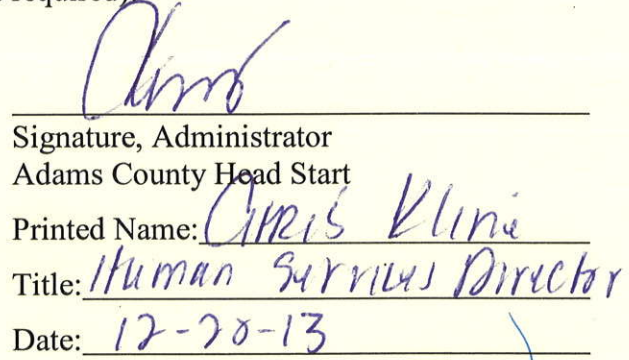 required)
Signature, Administrator
Adams County Head Start
Printed Name: Chris Kline
Title: Human Services Director
Date: 12-20-13